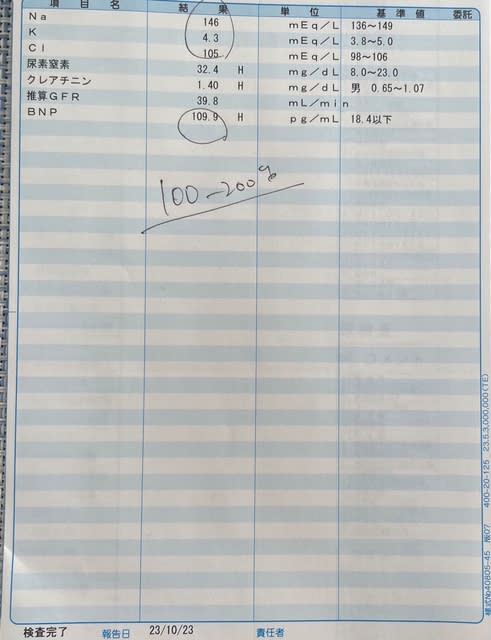 項目名 結果 単位 基準値 委託
Na 146 mEq/L 136~149
K 4.3 mEq/L 3.8~5.0
Cl 105 mEq/L 98~106
尿素窒素 32.4 H mg/dL 8.0~23.0
クレアチニン 1.40 H mg/dL 男 0.65~1.07
推算GFR 39.8 mL/min
BNP 109.9 H pg/mL 18.4以下
100-200
検査完了 報告日 23/10/23 責任者
様式No40805-45 版07 400-20-125 23.5.3,000,000(TE)